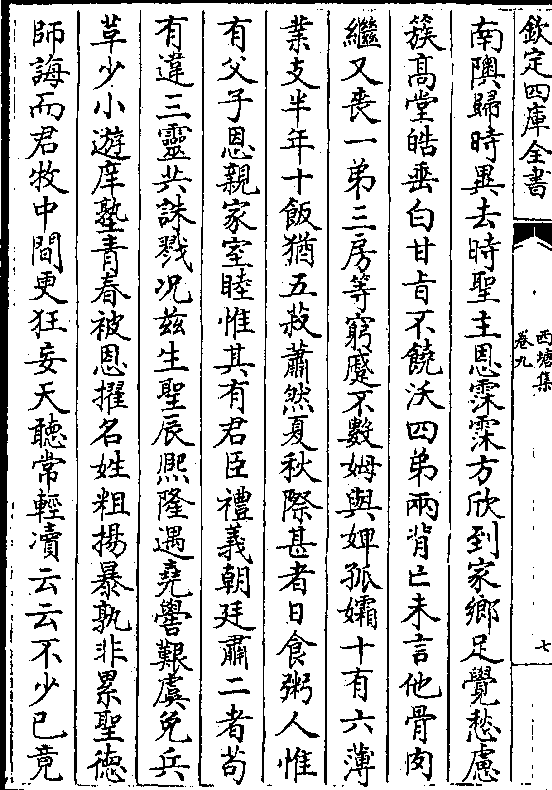 欽定四庫全書
西塘集
卷九
七
南隩歸時異去時聖主恩霂霂方欣到家鄉足覺愁慮
簇髙堂皓垂白甘㫖不饒沃四弟兩背亡未言他骨肉
繼又喪一弟三房等窮蹙不數姆與婢孤孀十有六薄
業支半年十飯猶五菽蕭然夏秋際甚者日食粥人惟
有父子恩親家室睦惟其有君臣禮義朝廷肅二者茍
有違三靈共誅戮况兹生聖辰熈隆遇堯嚳艱虞免兵
草少小遊庠塾青春被恩擢名姓粗揚暴孰非累聖徳
師誨而君牧中間更狂妄天聽常輕瀆云云不少已竟